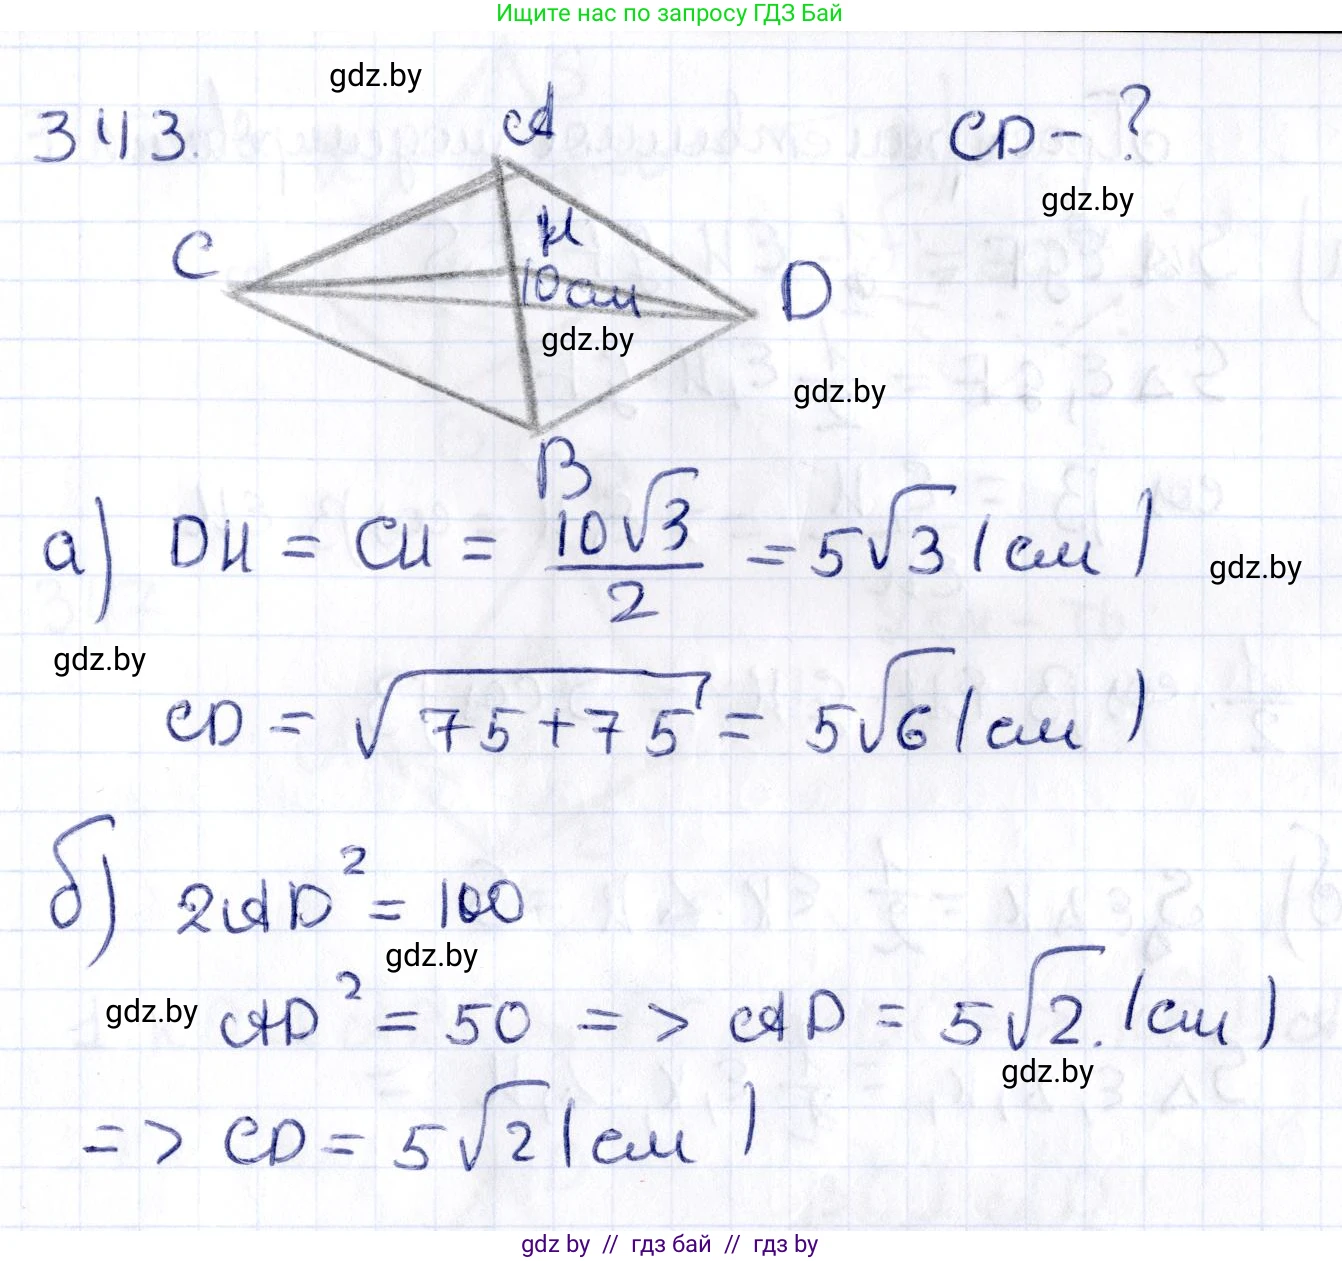 Ищите нас по запросу ГДЗ Бай
gdz.by
343.
A
CD - ?
gdz.by
C
H
10см
D
gdz.by
gdz.by
B
а) DH = CH = 10√3/2 = 5√3 (см)
gdz.by
gdz.by
CD = √75+75 = 5√6 (см)
б) 2AD² = 100
gdz.by
gdz.by
AD² = 50 => AD = 5√2. (см)
gdz.by
=> CD = 5√2 (см)
gdz by // гдз бай // гдз by